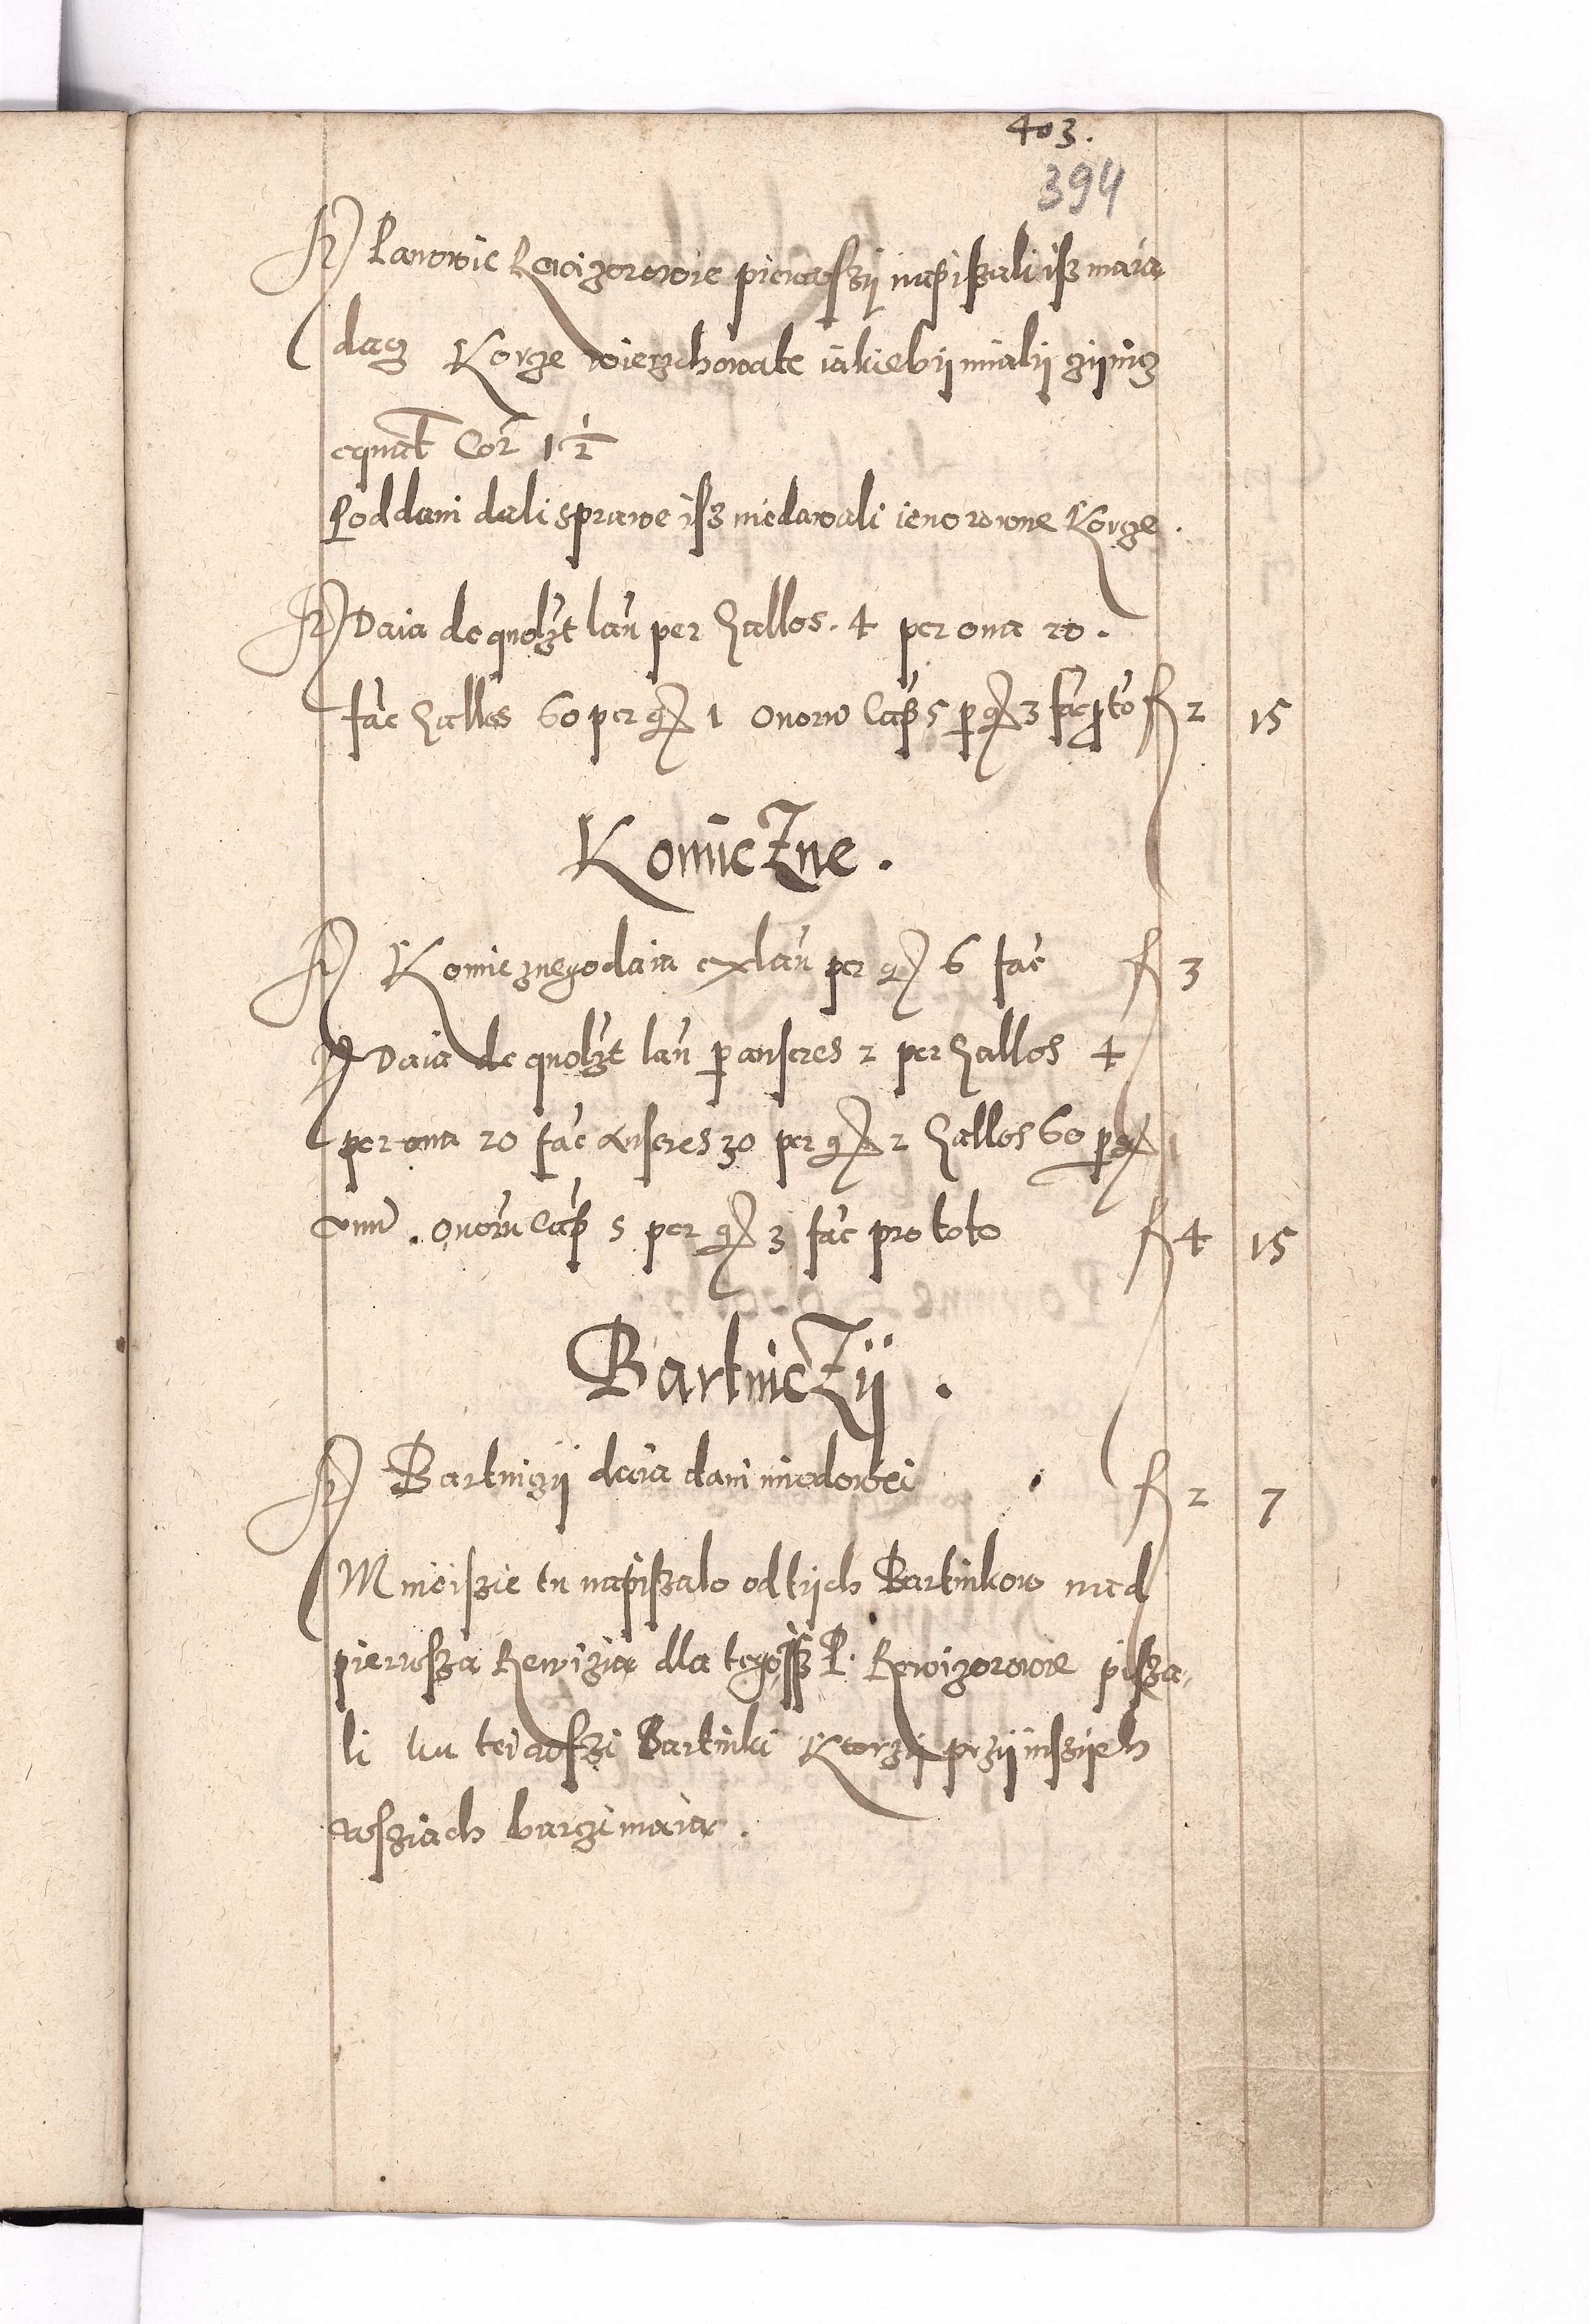 403.
394
Panowie Rewizorowie pierwszÿ napiszali isz maia
dacz Korge wierzchowate iakiebÿ mialÿ czÿnicz
equat Cor 1 1/2
Poddani dali sprawe isz niedawali ieno rowne Korge.
Daia de quolzt lan per Gallos. 4 per oua 20.
fac Gallos 60 per gr 1 Ouorum Cap 5 per gr 3 fac pro toto f 2 15
KomicZne.
Komicznego daia ex lan per gr 6 fac f 3
Daia de quolzt lan per anseres 2 per Gallos 4
per oua 20 fac Anseres 30 per gr 2 Gallos 60 per gr 1
. Ouorum Cap 5 per gr 3 fac pro toto f 4 15
BartnicZÿ.
Bartniczÿ daia dani miodowei f 2 7
Mnieiszie tu napiszalo od tÿch Bartnikow nad
pierwsza Rewizia dla tegosz P. Rewizorowie pisza,
li tu tei wszi Bartniki Ktorzÿ przÿ inszÿch
wsziach barczi maia.